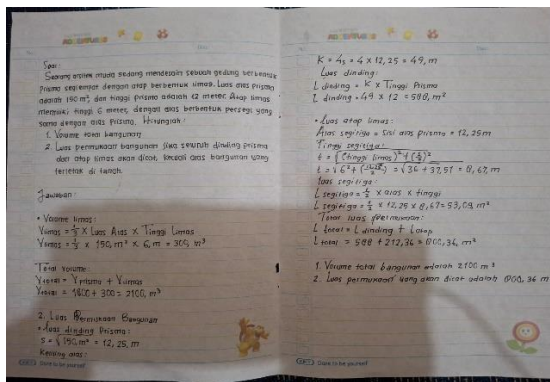 Soal:
Seorang arsitek muda sedang mendesain sebuah gedung berbentuk
Prisma segiempat dengan atap berbentuk limas. Luas alas prisma
adalah 150 m², dan tinggi prisma adalah 12 meter. Atap limas
memiliki tinggi 6 meter, dengan alas berbentuk persegi yang
sama dengan alas prisma. Hitunglah:
1. Volume total bangunan
2. Luas permukaan bangunan jika seluruh dinding prisma
dan atap limas akan dicat, kecuali alas bangunan yang
terletak di tanah.
Jawaban:
• Volume limas:
Vlimas = 1/3 x Luas Alas x Tinggi Limas
Vlimas = 1/3 x 150, m² x 6, m = 300, m³
Total volume:
Vtotal = Vprisma + Vlimas
Vtotal = 1800 + 300 = 2100, m³
2. Luas Permukaan Bangunan
• Luas dinding Prisma:
s = √150, m² = 12,25, m
Keliling alas:
Dare to be yourself
K = 4s = 4 x 12,25 = 49, m
Luas dinding:
L dinding = K x Tinggi Prisma
L dinding = 49 x 12 = 588, m²
• Luas atap limas:
Alas segitiga = Sisi alas prisma = 12,25 m
Tinggi segitiga:
t = √(tinggi limas)² + (s/2)²
t = √6² + (12,25/2)² = √36 + 37,51 = 8,67, m
Luas segitiga:
L segitiga = 1/2 x alas x tinggi
L segitiga = 1/2 x 12,25 x 8,67 = 53,09, m²
Total luas permukaan:
L total = L dinding + L atap
L total = 588 + 212,36 = 800,36, m²
1. Volume total bangunan adalah 2100 m³
2. Luas permukaan yang akan dicat adalah 800,36 m
Dare to be yourself